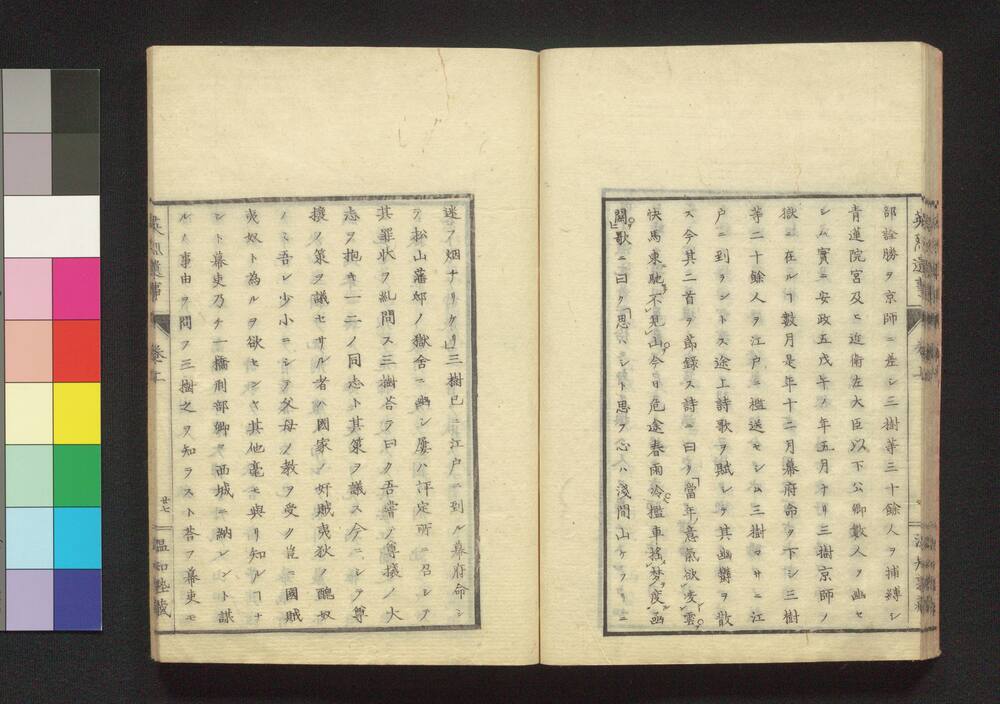 部詮勝ヲ京師ニ差シ三樹等三十餘人ヲ捕縛シ
青蓮院宮及ヒ近衛左大臣以下公卿數人ヲ幽セ
シム實ニ安政五戊午ノ年五月ナリ三樹京師ノ
獄ニ在ルヿ數月是年十二月幕府命ヲ下シ三樹
等二十餘人ヲ江戸ニ檻送セシム三樹マサニ江
戸ニ到ラントス途上詩歌ヲ賦シテ其幽欝ヲ散
ス今其二首ヲ節録ス詩ニ曰ク「當年意氣欲凌雲
快馬東馳不見山今日危途春雨冷檻車揺夢度函
關」歌ニ曰ク「思ハシト思フ心ハ淺間山ケフリニ
迷フ烟ナリケリ」三樹已ニ江戸ニ到ル幕府命シ
テ松山藩邸ノ獄舎ニ幽シ屡ハ評定所ニ召シテ
其罪状ヲ糺問ス三樹荅ヘテ曰ク吾嘗ノ尊攘ノ大
志ヲ抱キ一二ノ同志ト其策ヲ議ス今ニシテ尊
攘ノ策ヲ議セサル者ハ國家ノ奸賊夷狄ノ醜奴
ノミ吾レ少小ニシテ父母ノ教ヲ受ク豈ニ國賊
夷奴ト為ルヲ欲センヤ其他毫モ與リ知ルヿナ
シト幕吏乃チ一橋刑部卿ヲ西城ニ納レント謀
ルノ事由ヲ問フ三樹之ヲ知ラスト荅フ幕吏モ
卷上
廿七